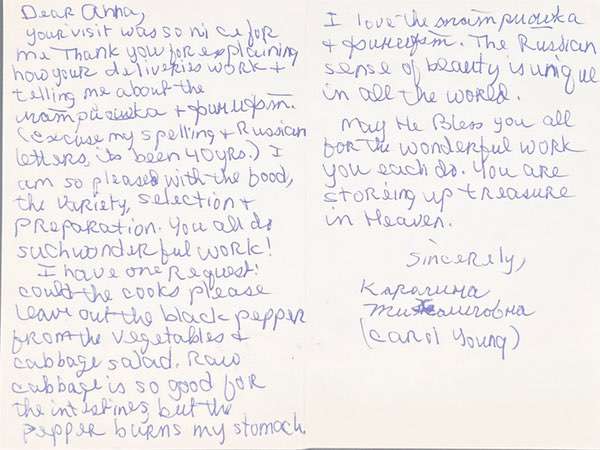 Dear Anna,
Your visit was so nice for
me Thank you for explaining
how your deliveries work +
telling me about the
матриошка + финифт.
(excuse my spelling + Russian
letters, its been 40 yrs.) I
am so pleased with the food,
the variety, selection +
preparation. You all do
such wonderful work!
I have one request:
could the cooks please
leave out the black pepper
from the vegetables +
cabbage salad. Raw
cabbage is so good for
the intestines, but the
pepper burns my stomach.
I love the матриошка
+ финифт. The Russian
sense of beauty is unique
in all the world.
May He Bless you all
for the wonderful work
you each do. You are
storeing up treasure
in Heaven.
Sincerely,
Каролина
(Carol Young)